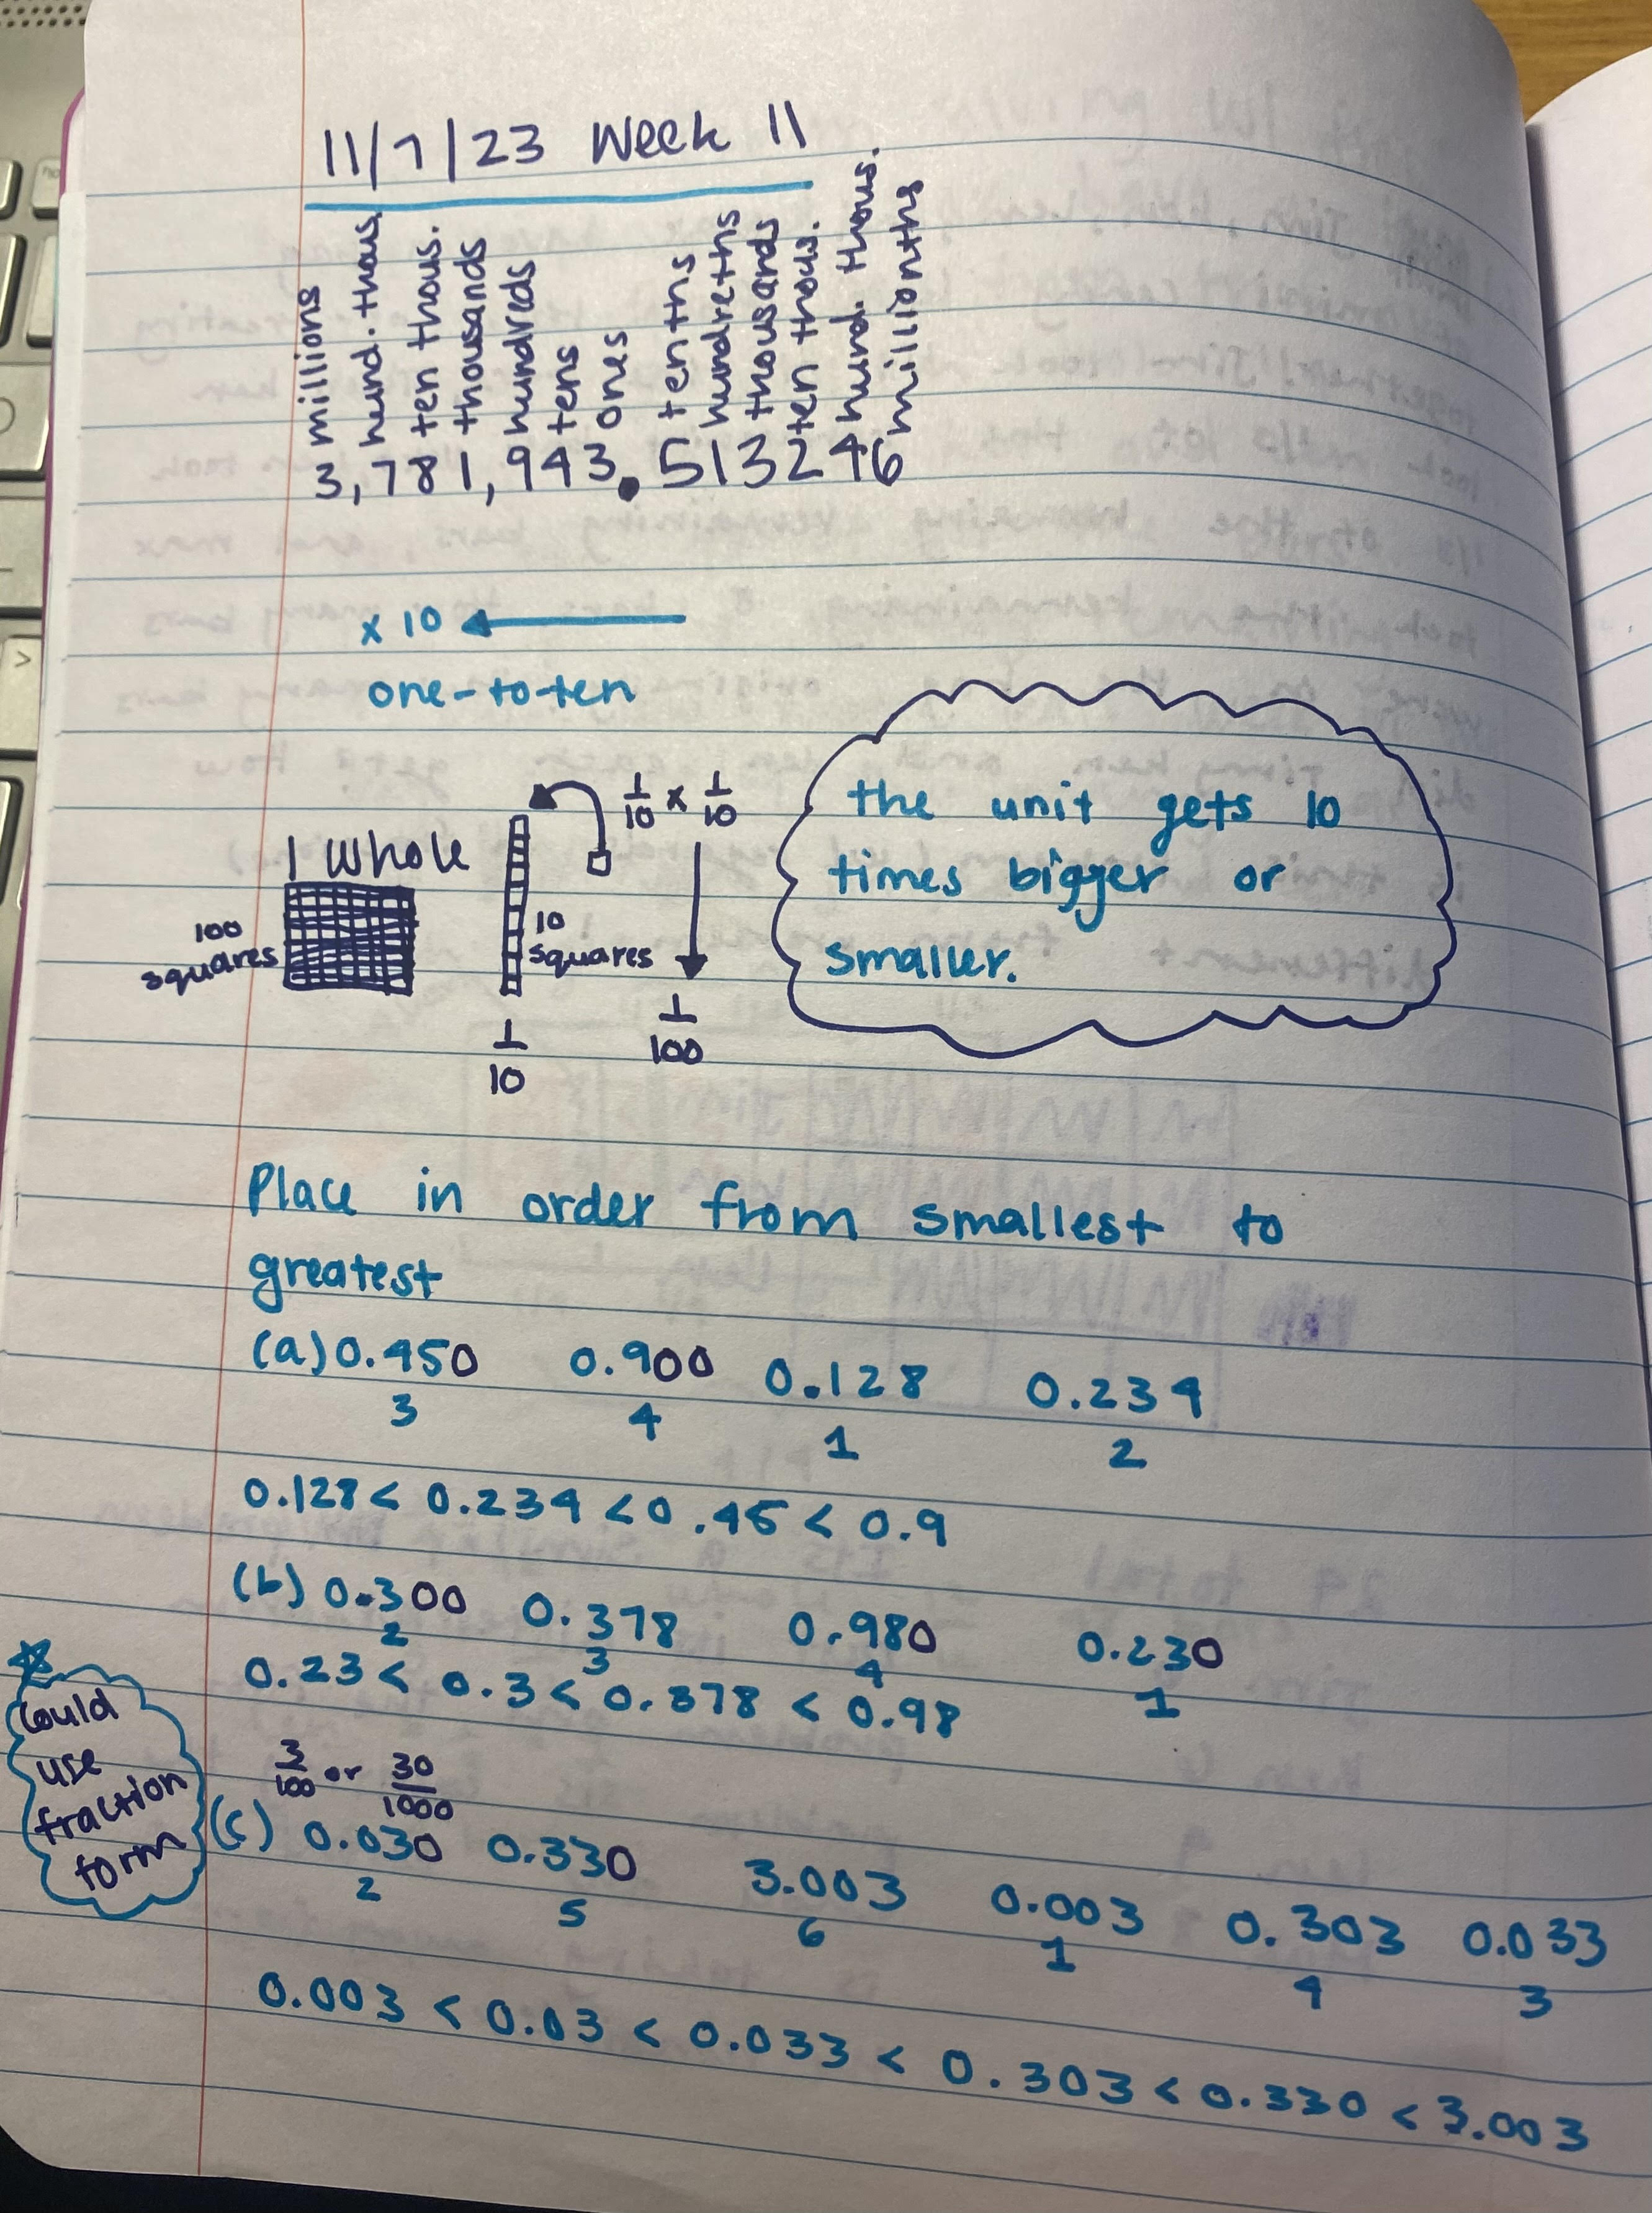 11/7/23 Week 11
millions
hund. thous.
ten thous.
thousands
hundreds
tens
ones
tenths
hundreths
thousands
ten thous.
hund. thous.
millionths
3,781,943.513246
x 10
one-to-ten
1 whole
100 squares
10 squares
1/10
1/10 x 1/10
1/100
the unit gets 10
times bigger or
smaller.
Place in order from smallest to
greatest
(a) 0.450 0.900 0.128 0.234
3 4 1 2
0.128 < 0.234 < 0.45 < 0.9
(b) 0.300 0.378 0.980 0.230
2 3 4 1
0.23 < 0.3 < 0.378 < 0.98
Could
use
fraction
form
3/100 or 30/1000
(c) 0.030 0.330 3.003 0.003 0.303 0.033
2 5 6 1 4 3
0.003 < 0.03 < 0.033 < 0.303 < 0.330 < 3.003